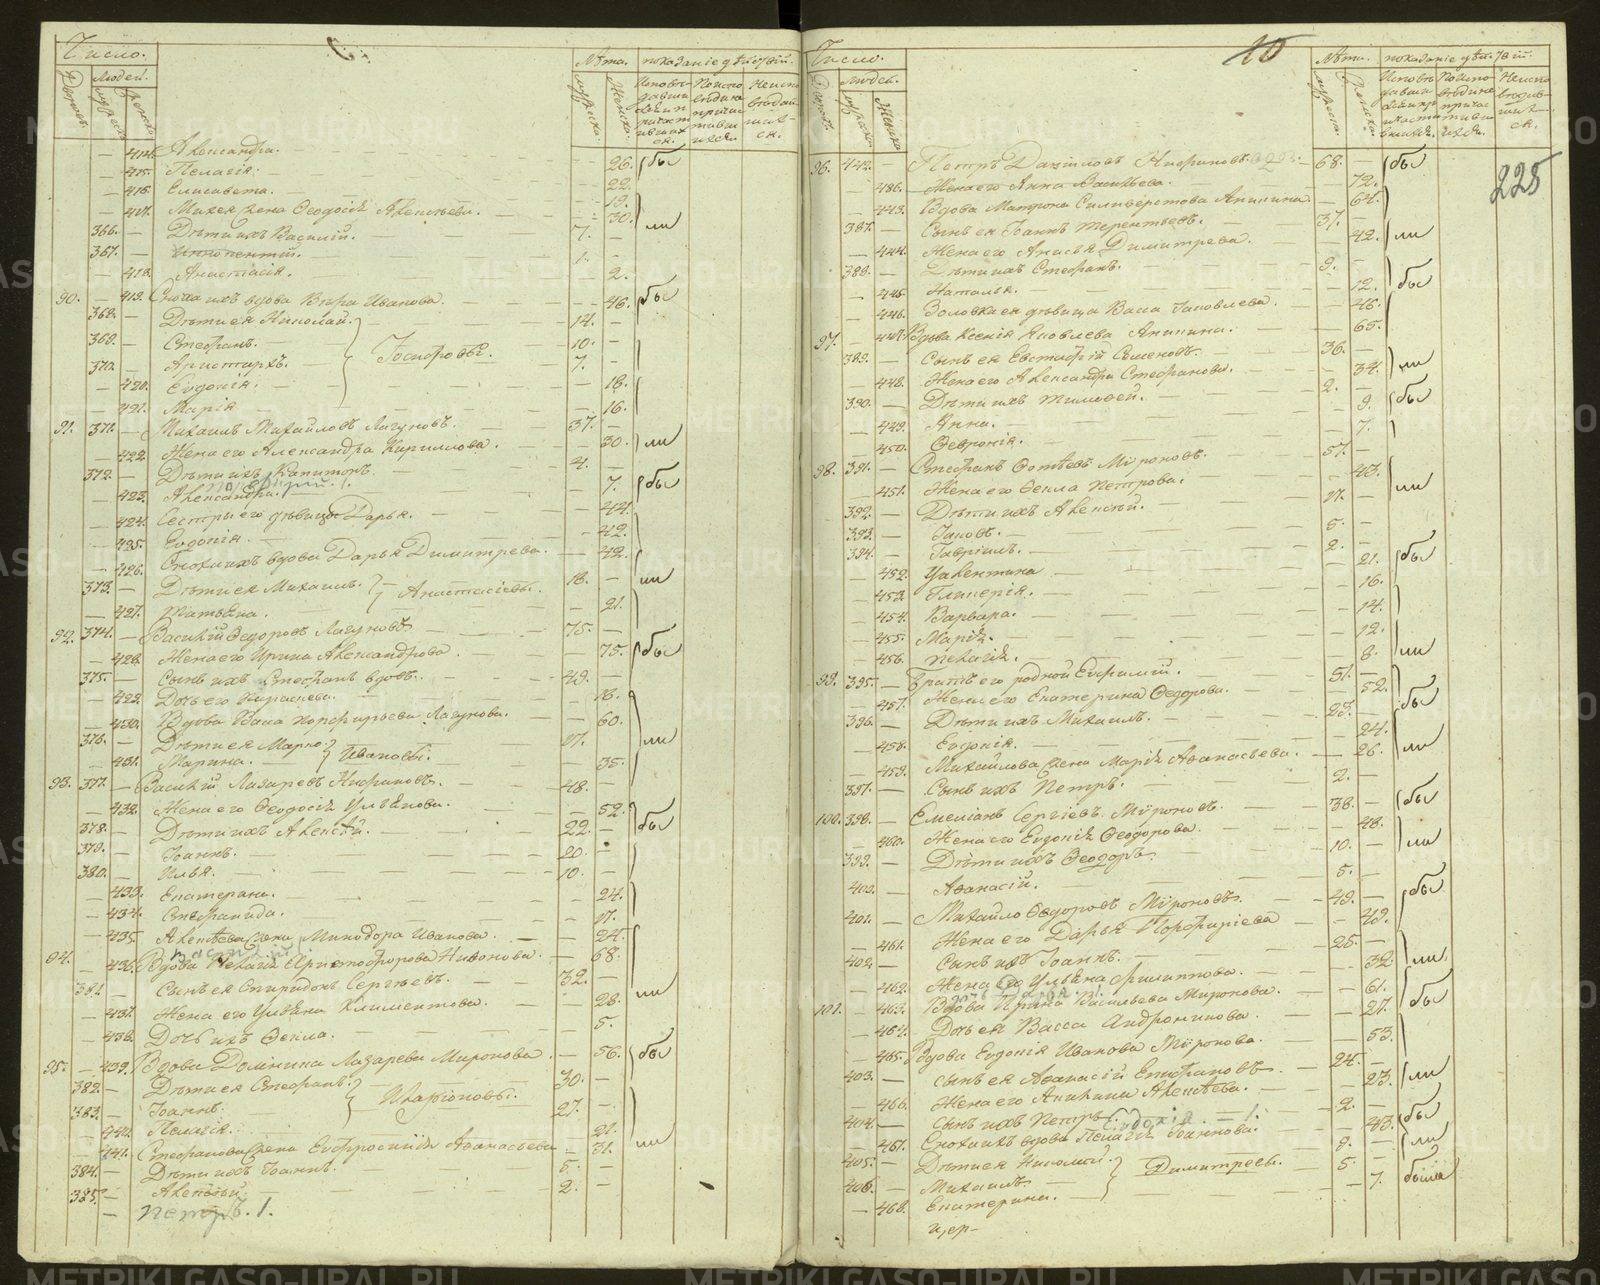 Число.
Дворовъ.
Людей.
мужеска.
женска.
Лѣта.
мужеска.
Женска.
показание дѣйствій.
414. Александра. 26. бы
415. Пелагія. 22.
416. Елисавета. 19.
417. жена Ѳеодосія Алексѣева. 30. ли
366. Дѣти ихъ Василій. 7.
367. Иннокентій. 1.
418. Анастасія. 2.
90. 419. Сноха ихъ вдова Вѣра Иванова. 46. бы
368. Дѣти ея Николай. 14.
369. Стефанъ. 10.
370. Аристархъ. 7.
420. Евдокія. 18.
421. Марія 16.
91. 371. Михаилъ Михайловъ Лагуновъ. 37.
422. Жена его Александра Кириллова. 30. ли
372. Дѣти ихъ Капитонъ. 4.
423. Александра. 7. бы
424. Сестры его дѣвицы Дарья. 44.
425. Евдокія. 42.
426. Сноха ихъ вдова Дарья Димитрева. 42.
373. Дѣти ея Михаилъ. Анастасіевы. 18. ли
427. Татьяна. 21.
92. 374. Василій Ѳедоровъ Лагуновъ 75.
428. Жена его Ирина Александрова. 75. бы
375. Сынъ ихъ Стефанъ вдовъ. 49.
429. Дочь его Параскева. 18.
430. Вдова Васа Порфирьева Лагунова. 60.
376. Дѣти ея Марко. Ивановы. 17. ли
431. Марина. 35.
93. 377. Василій Лазаревъ Никоновъ. 48.
432. Жена его Ѳеодосія Ульянова. 52.
378. Дѣти ихъ Алексѣй. 22. бы
379. Іоаннъ. 20.
380. Илья. 10.
433. Екатерина. 24.
434. Стефанида. 17.
435. Алексѣева жена Минодора Иванова. 24.
94. 436. Вдова Пелагія Христофорова Никонова. 68.
381. Сынъ ея Спиридонъ Сергѣевъ. 32.
437. Жена его Ульяна Климентова. 28. ли
438. Дочь ихъ Ѳекла. 5.
95. 439. Вдова Домнина Лазарева Миронова. 56. бы
382. Дѣти ея Стефанъ. Иларіоновы. 30.
383. Іоаннъ. 27.
440. Пелагія. 21.
441. Стефанова жена Евфросинія Аѳанасьева 31. ли
384. Дѣти ихъ Іоаннъ. 5.
385. Алексѣй 2.
Петръ. 1.
10
225
Число.
Людей.
Женска
Лѣта.
показаніе дѣйствій.
96. 442. Петръ Даниловъ Никоновъ. 68. бы
486. Жена его Анна Васильева. 72.
443. Вдова Матрона Силиверстова Аникина. 64.
387. Сынъ ея Іоаннъ Терентьевъ. 37.
444. Жена его Анисья Димитрева. 42. ли
388. Дѣти ихъ Стефанъ. 9.
445. Наталья. 12. бы
446. Золовка ея дѣвица Васса Іаковлева. 46.
97. 447. Вдова Ксенія Яковлева Аникина. 65.
389. Сынъ ея Евстафій Семеновъ. 36.
448. Жена его Александра Стефанова. 34. ли
390. Дѣти ихъ Тимоѳей. 2.
449. Анна. 9. бы
450. Февронія. 7.
98. 391. Стефанъ Фотѣевъ Мироновъ. 51.
451. Жена его Ѳекла Петрова. 43. ли
392. Дѣти ихъ Алексѣй. 17.
393. Іаковъ. 5.
394. Гавріилъ. 2.
452. Валентина 21. бы
453. Гликерія. 16.
454. Варвара. 14.
455. Марія. 12.
456. Пелагія. 8. ли
99. 395. Братъ его родной Евфимій. 51.
457. Жена его Екатерина Ѳедорова. 52.
396. Дѣти ихъ Михаилъ. 23. бы
458. Евдокія. 24.
459. Михайлова жена Марія Аѳанасьева. 26. ли
397. Сынъ ихъ Петръ. 2.
100. 398. Емеліанъ Сергіевъ Мироновъ. 38. бы
460. Жена его Евдокія Ѳеодорова. 48.
399. Дѣти ихъ Ѳеодоръ. 10. ли
400. Аѳанасій. 5.
401. Михайло Ѳедоровъ Мироновъ. 49. бы
461. Жена его Дарья Порфирієва 49.
402. Сынъ ихъ Іоаннъ. 25.
462. Жена его Ульяна Филиппова. 32. ли
101. 463. Вдова Ирина Васильева Миронова. 61.
464. Дочь ея Васса Андроникова. 27. бы
465. Вдова Евдокія Иванова Миронова. 53.
403. Сынъ ея Аѳанасій Епифановъ. 24.
466. Жена его Аникина Алексѣева. 23. ли
404. Сынъ ихъ Петръ 2.
Евдокія — 1.
467. Сноха ихъ вдова Пелагія Іоаннова. 43. бы
405. Дѣти ея Николай. Димитревы. 9. ли
406. Михаилъ. 5.
468. Екатерина. 7. были